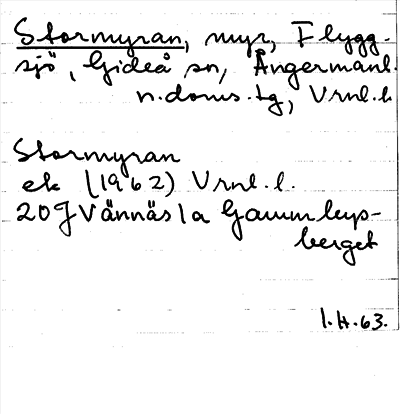 Stormyran, myr, Flygg-
sjö, Gideå sn, Ångermanl.
n.doms.tg, Vrnl.l.
Stormyran
ek (1962) Vrnl.l.
20J Vännäs 1a Gammleps-
berget
1.H.63.